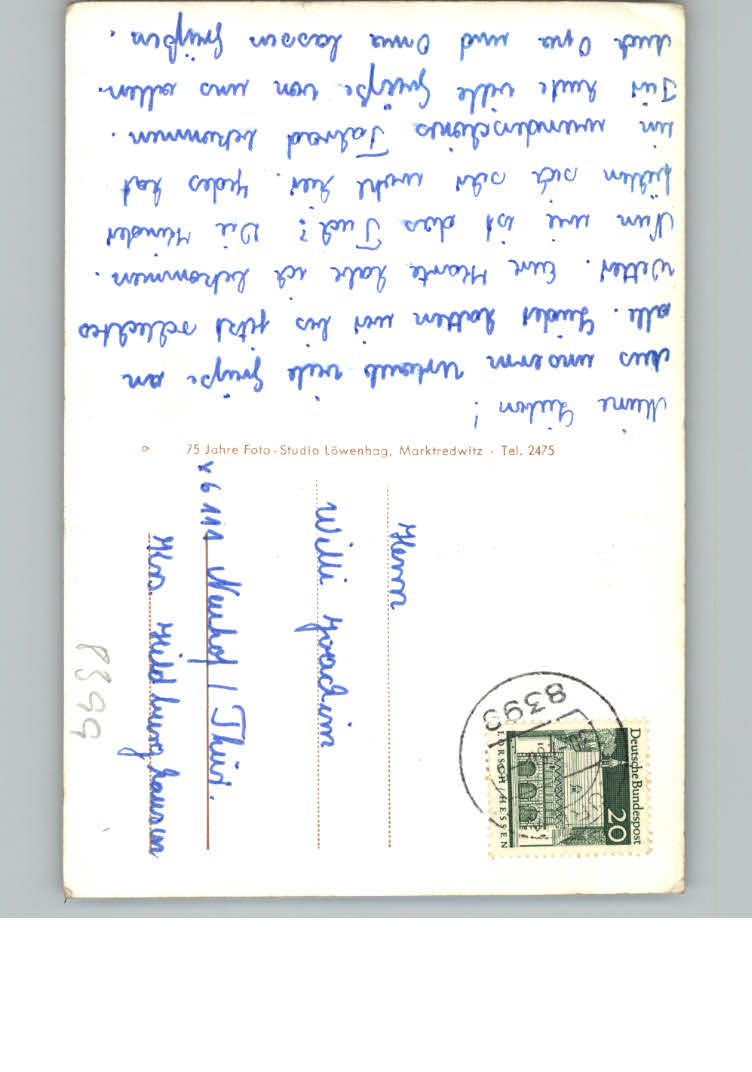 Meine Lieben!
Aus unserm Urlaub viele Grüße an
alle. Leider hatten wir bis jetzt schlechtes
Wetter. Eure Karte habe ich bekommen.
Nun wie ist das Tud? Die Kinder
fühlen sich sehr wohl hier. Jedes hat
ein wunderschönes Fahrad bekommen.
Für heute viele Grüße von uns allen.
Auch Opa und Oma lassen Grüßen.
75 Jahre Foto-Studio Löwenhag, Marktredwitz · Tel. 2475
Herrn
Willi Joachim
x 6111 Neuhof / Thür.
Krs. Hildburghausen
Deutsche Bundespost
20
LORSCH/HESSEN
839